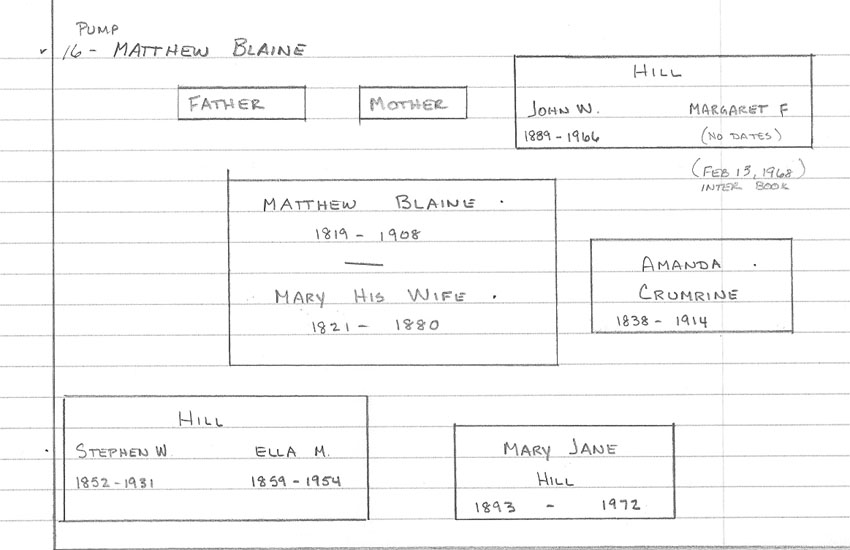 PUMP
16 - MATTHEW BLAINE
FATHER
MOTHER
HILL
JOHN W. MARGARET F
1889 - 1966 (NO DATES)
(FEB 15, 1968)
INTER BOOK
MATTHEW BLAINE .
1819 - 1908
—
MARY HIS WIFE .
1821 - 1880
AMANDA .
CRUMRINE
1838 - 1914
HILL
STEPHEN W. ELLA M.
1852 - 1931 1859 - 1954
MARY JANE
HILL
1893 - 1972